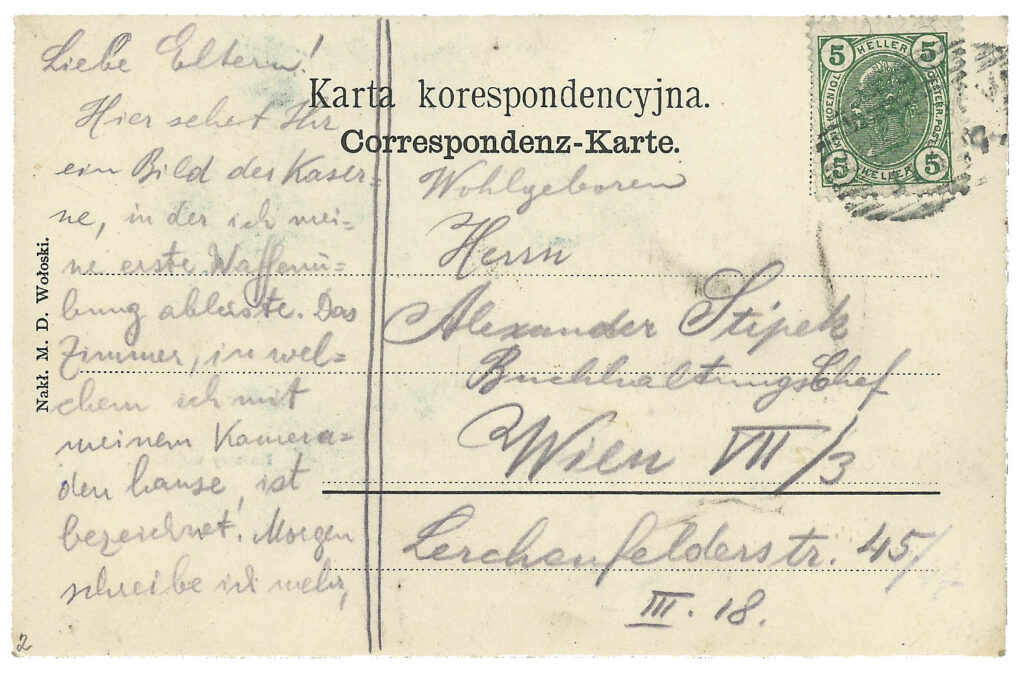 Liebe Eltern!
Hier sehet Ihr
ein Bild der Kaser=
ne, in der ich mei=
ne erste Waffenü=
bung ableiste. Das
Zimmer, in wel=
chem ich mit
meinem Kamera=
den hause, ist
bezeichnet! Morgen
schreibe ich mehr,
Karta korespondencyjna.
Correspondenz-Karte.
Wohlgeboren
Herrn
Alexander Stipek
Buchhaltungschef
Wien VII/3
Lerchenfelderstr. 45/
III. 18.
Nakł. M. D. Wołoski.
5 HELLER 5
5 HELLER 5
2